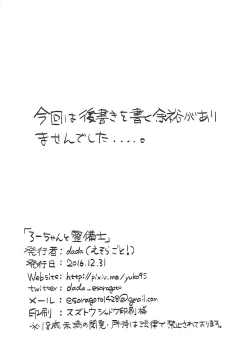 今回は後書きを書く余裕があり
ませんでした....。
「ろーちゃんと整備士」
発行者：dada(えそらごと!)
発行日：2016.12.31
Website: http://pixiv.me/yuko95
twitter: dada_esoragoto
メール：esoragoto1428@gmail.com
印刷：スズトウシャドウ印刷様
※18歳未満の閲覧・所持は法律で禁止されております。